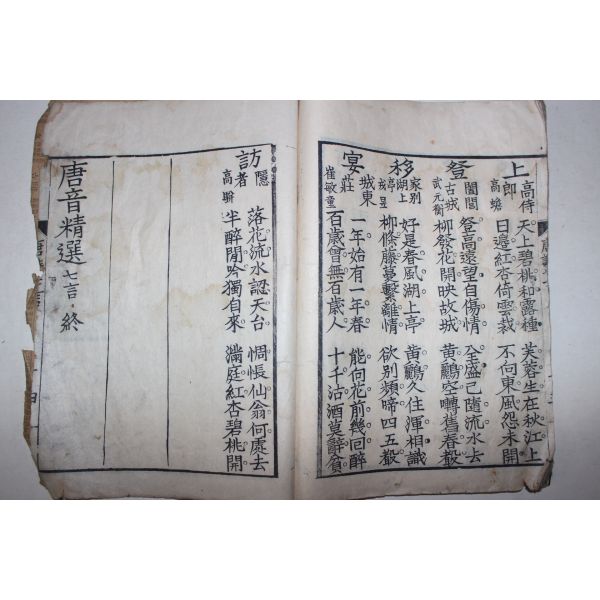 上高侍郎 高蟾
天上碧桃和露種 芙蓉生在秋江上
日邊紅杏倚雲栽 不向東風怨未開
登闔閭古城 武元衡
登高遠望自傷情 全盛已隨流水去
柳發花開映故城 黃鸝空囀舊春聲
移家別湖上亭 戎昱
好是春風湖上亭 黃鸝久住渾相識
柳條藤蔓繫離情 欲別頻啼四五聲
宴城東莊 崔敏童
一年始有一年春 能向花前幾回醉
百歲曾無百歲人 十千沽酒莫辭貧
訪隱者 高騈
落花流水認天台 惆悵仙翁何處去
半醉閒吟獨自來 滿庭紅杏碧桃開
唐音精選 七言 終